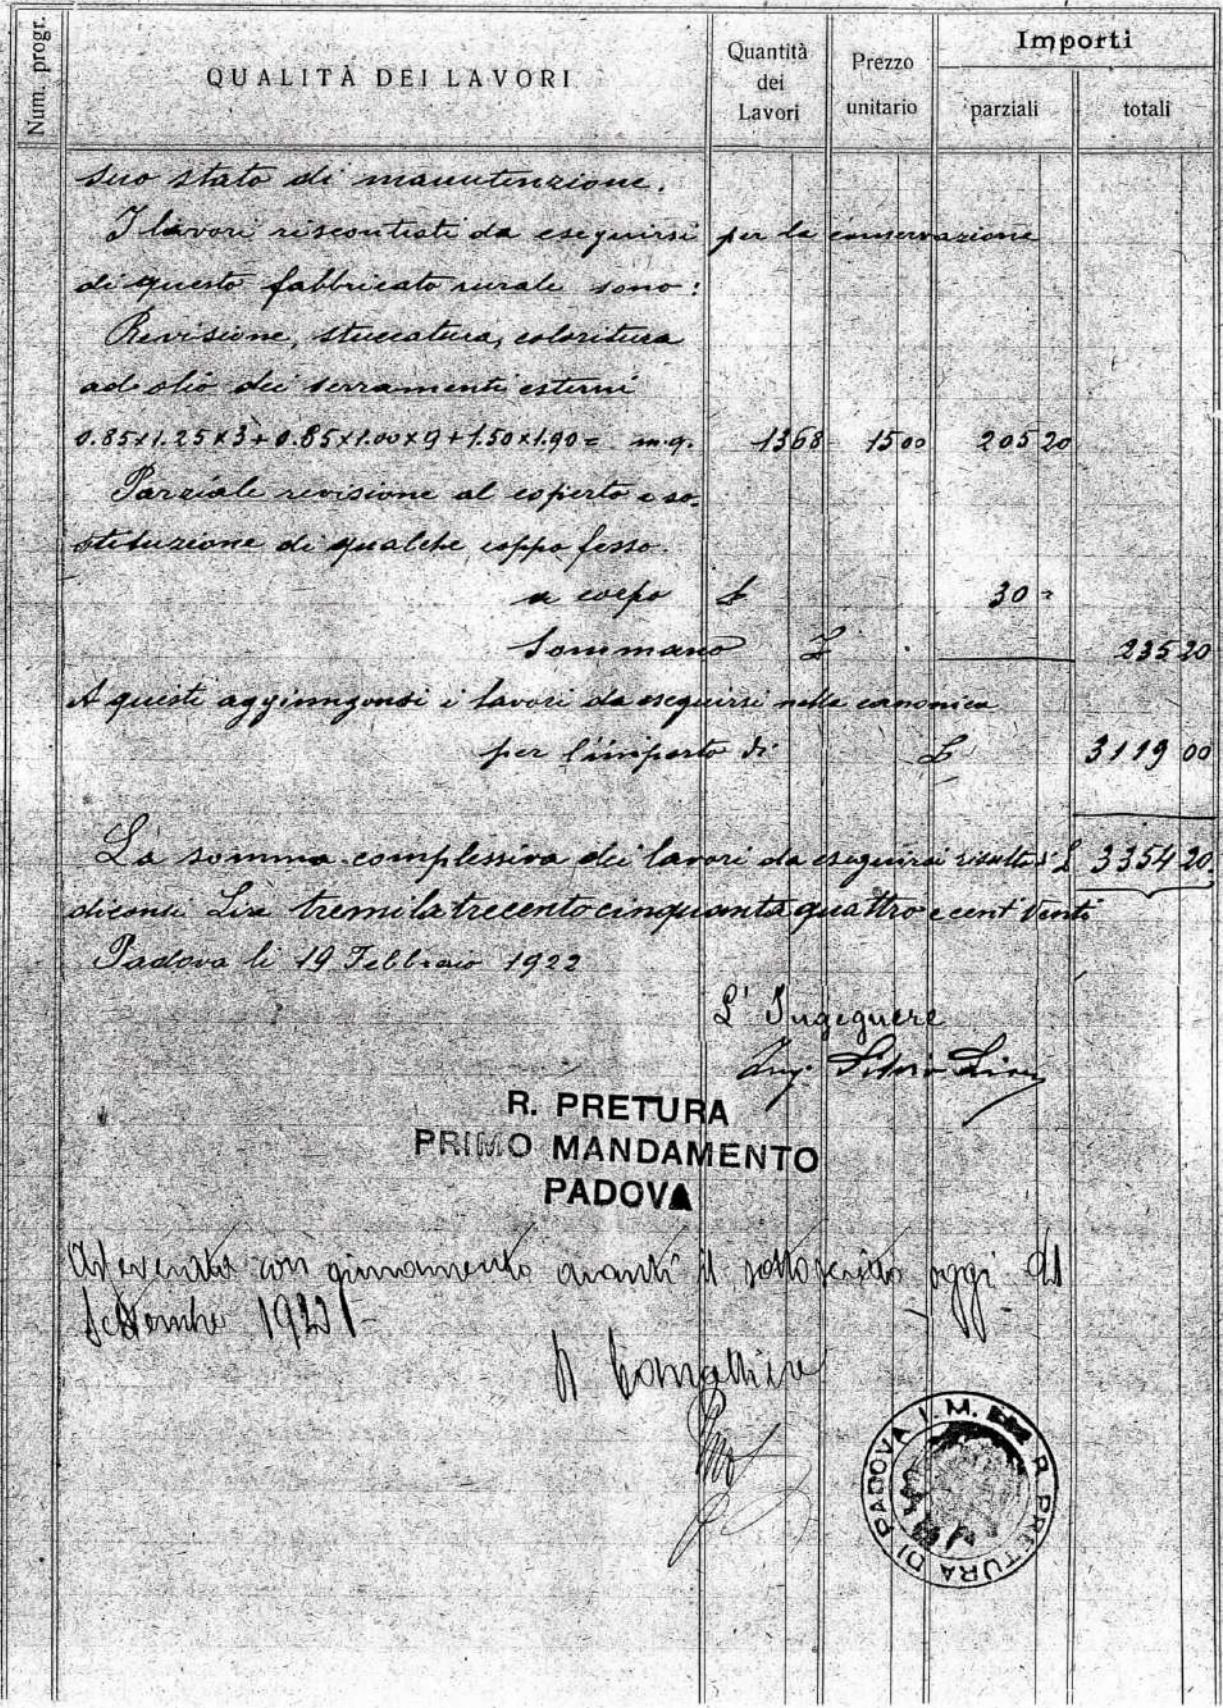 Num. progr.
QUALITÀ DEI LAVORI
Quantità dei Lavori
Prezzo unitario
Importi
parziali
totali
suo stato di manutenzione.
I lavori riscontrati da eseguirsi per la conservazione
di questo fabbricato rurale sono:
Revisione, stuccatura, coloritura
ad olio dei serramenti esterni
0.85x1.25x3+0.85x1.00x9+1.50x1.90= m.q. 13 68 15 00 205 20
Parziale revisione al coperto e so-
stituzione di qualche coppo fesso.
a corpo £ 30 =
Sommano £ 235 20
A questi aggiungonsi i lavori da eseguirsi nella canonica
per l'importo di £ 3119 00
La somma complessiva dei lavori da eseguirsi risulta di £ 3354 20
diconsi Lire tremilatrecentocinquantaquattro e cent Venti
Padova li 19 Febbraio 1922
L'Ingegnere
Ing. Silvio
R. PRETURA
PRIMO MANDAMENTO
PADOVA
con giuramento avanti il sottoscritto oggi
Settembre
Il
R. PRETURA DI PADOVA I. M.